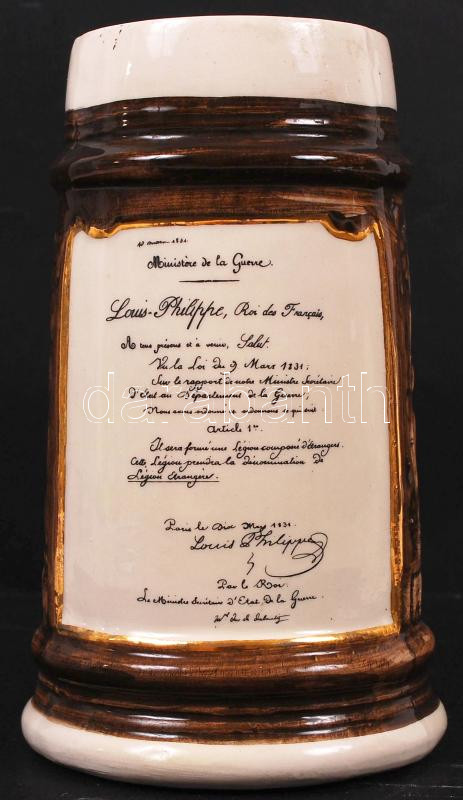 10 mars 1831
Ministère de la Guerre.
Louis-Philippe, Roi des Français,
A tous présens et à venir, Salut.
Vu la Loi du 9 Mars 1831;
Sur le rapport de notre Ministre Secrétaire
d'Etat au Département de la Guerre;
Nous avons ordonné et ordonnons
Article 1er
Il sera formé une Légion composé d'étrangers.
Cette Légion prendra la dénomination de
Légion étrangère.
Paris le Dix Mars 1831.
Louis Philippe
Par le Roi
Le Ministre Secrétaire d'Etat De la Guerre
darabanth